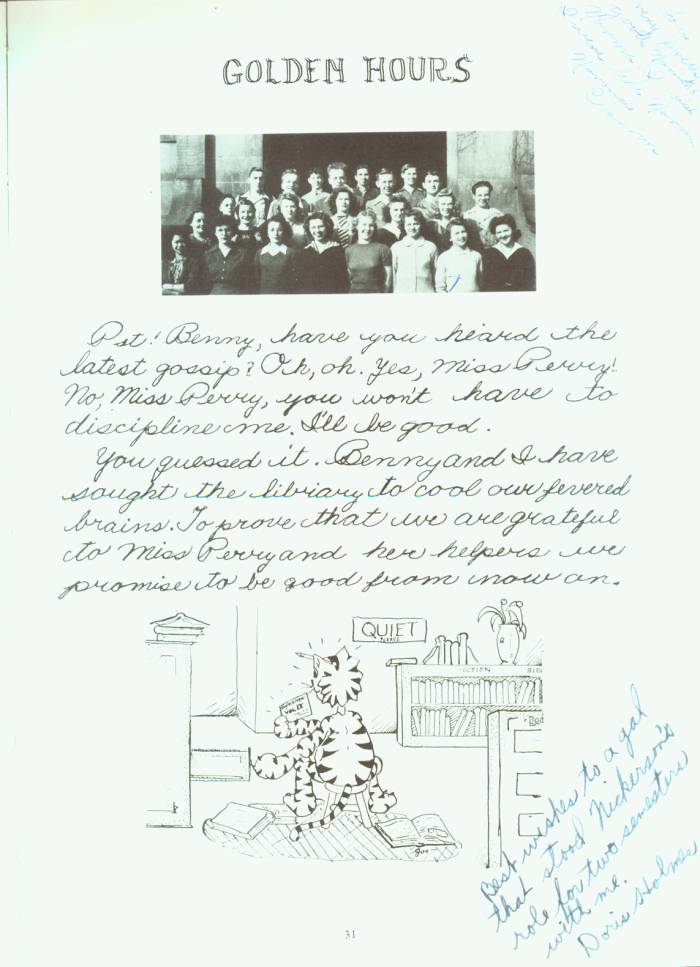 GOLDEN HOURS
To a
very pretty
good
Pst! Benny, have you heard the
latest gossip? Oh, oh. Yes, Miss Perry!
No, Miss Perry, you won't have to
discipline me. I'll be good.
You guessed it. Benny and I have
sought the libriary to cool our fevered
brains. To prove that we are grateful
to Miss Perry and her helpers we
promise to be good from now on.
QUIET
PLEASE
FICTION
VOL II
Best wishes to a gal
that stood Nickerson's
role for two semesters
with me.
Doris Holmes
31